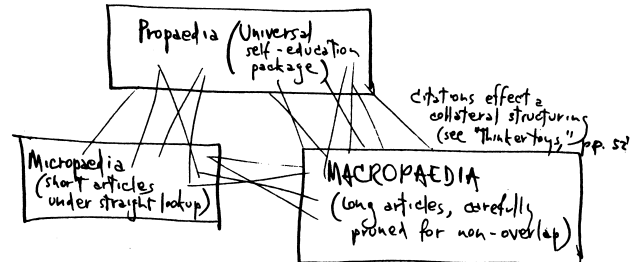 Propaedia (Universal
self-education
package)
citations effect a
collateral structuring
(see "Thinkertoys,"
pp. 52)
Micropaedia
(short articles
under straight lookup)
MACROPAEDIA
(long articles, carefully
pruned for non-overlap)